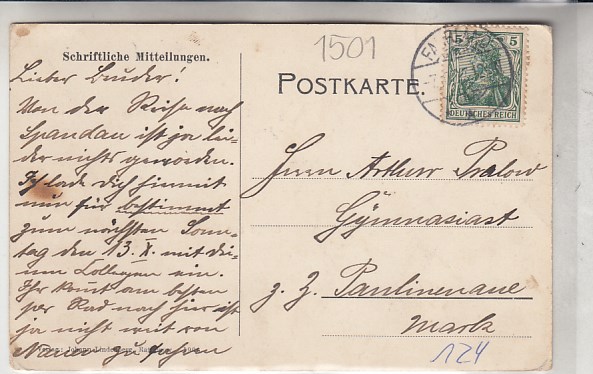 1501
Schriftliche Mitteilungen.
POSTKARTE.
5
DEUTSCHES REICH
Lieber Bruder!
Von der Reise nach
Spandau ist ja lei-
der nichts geworden.
Ich lade dich hiermit
nun für bestimmt
zum nächsten Sonn-
tag den 13. X. mit dei-
nem Collegen ein.
Ihr könnt am besten
per Rad nach hier ist
ja nicht weit von
Nauen zu fahren
Herrn Arthur
Gymnasiast
z. Z. Paulinenaue
Mark
124